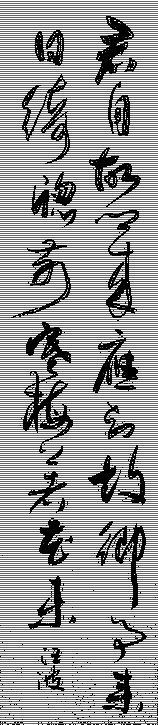 君自故鄉来應知故鄉事来
日綺窗前寒梅著花未